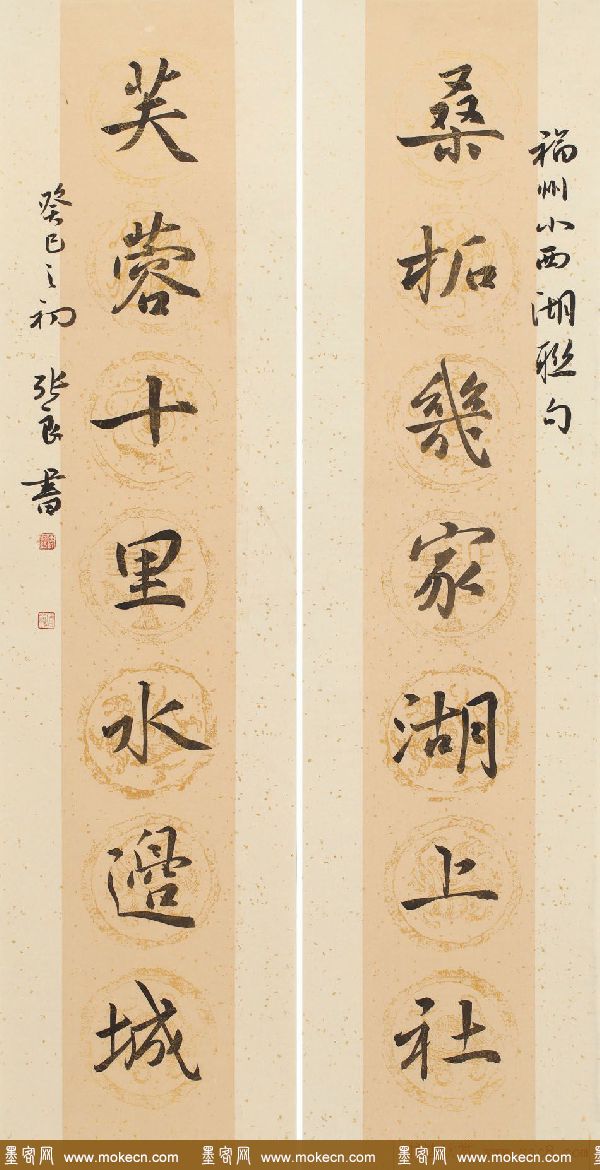 福州小西湖联句
桑柘幾家湖上社
芙蓉十里水邊城
癸巳之初 張良書
墨客网 www.mokecn.com 墨客网 www.mokecn.com 墨客网 www.mokecn.com